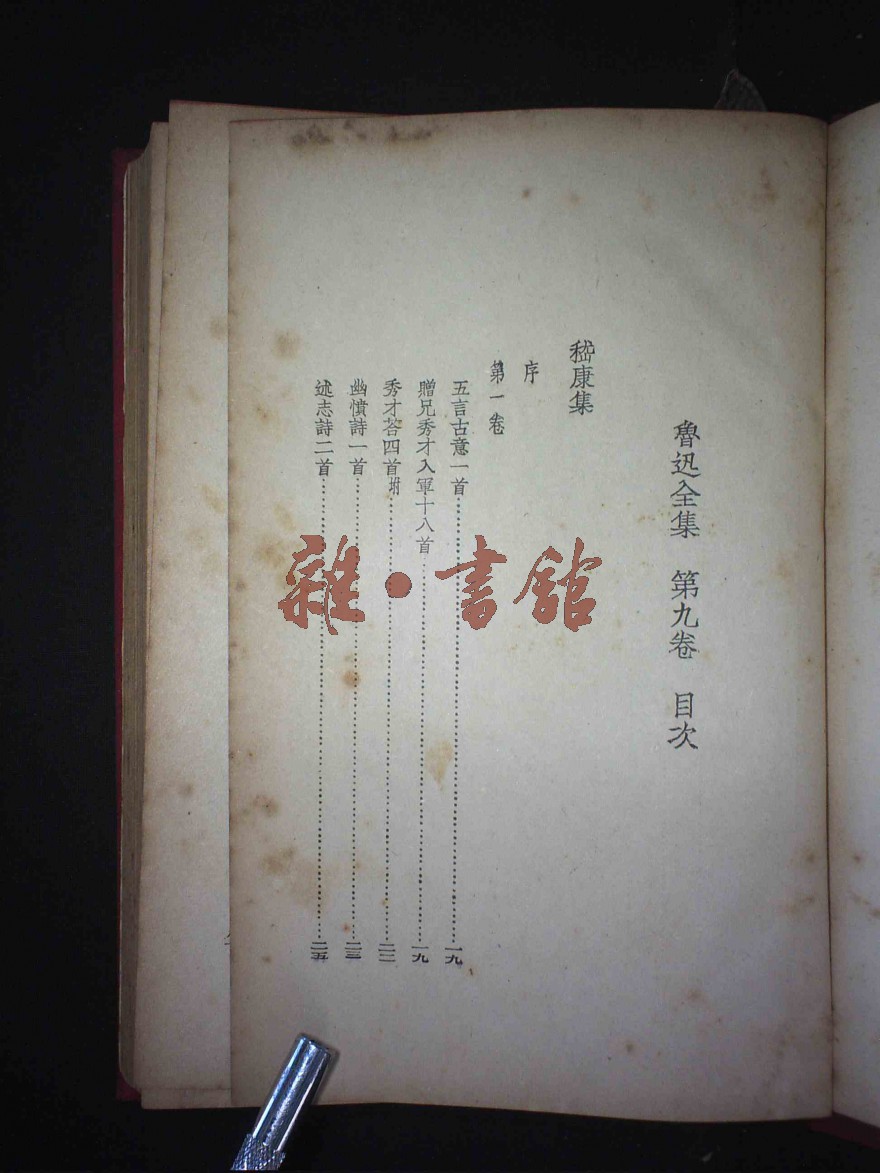 魯迅全集　第九卷　目次
嵇康集
序
第一卷
五言古意一首…………一九
贈兄秀才入軍十八首…………一九
秀才答四首附…………二二
幽憤詩一首…………二三
述志詩二首…………二五
雜·書館